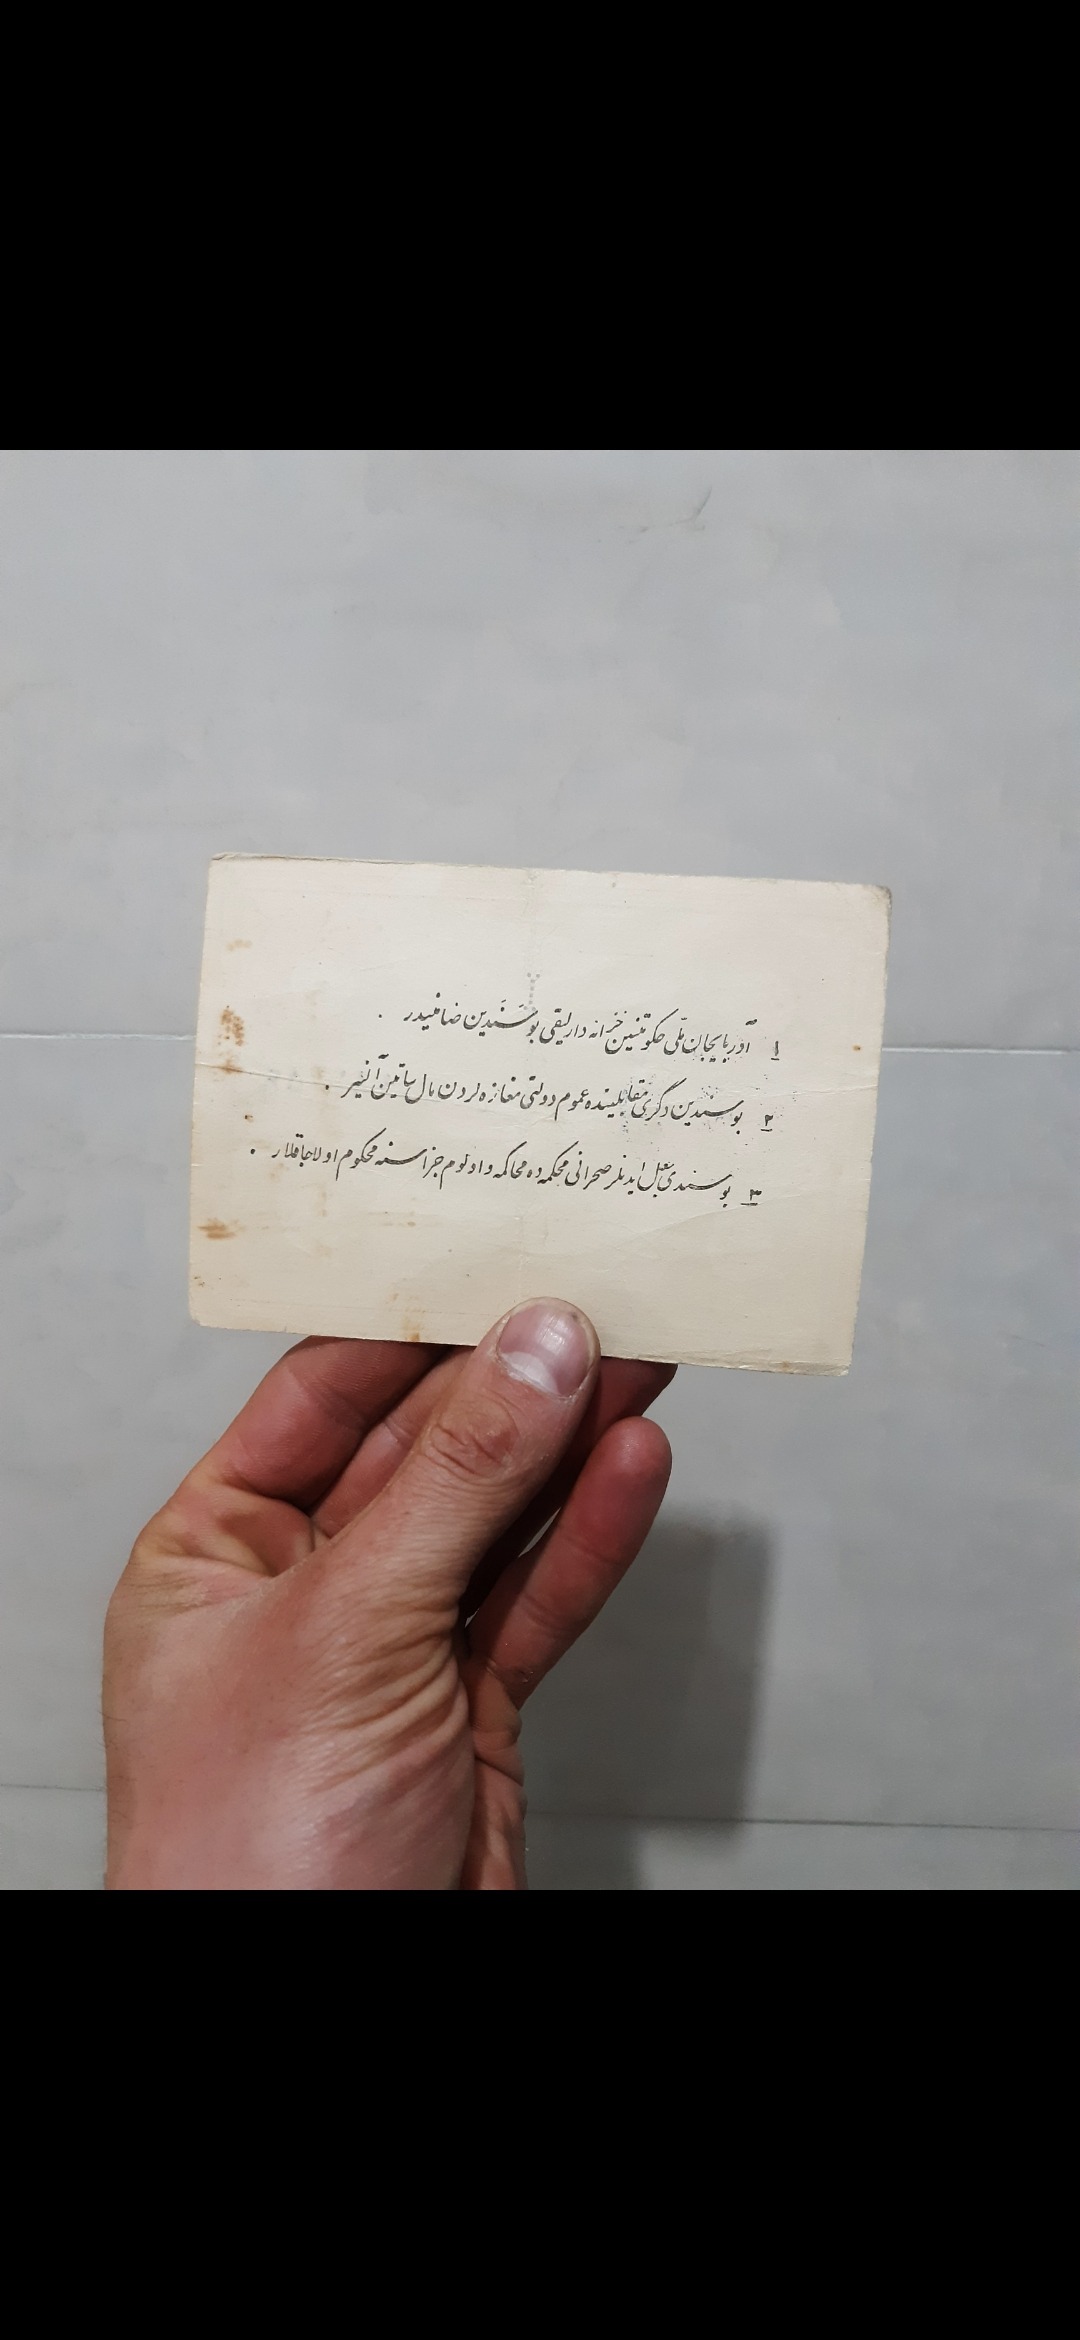 ۱ آذربایجان ملّی حکومتینین خزانه دارلیقی بو سَنَدین ضامنیدر .
۲ بو سندین دگری مقابلینده عموم دولتی مغازه لردن مال ساتین آلنیر .
۳ بو سندی جعل ایدنلر صحرائی محکمه ده محاکمه و اولوم جزاسنه محکوم اولاجاقلار .